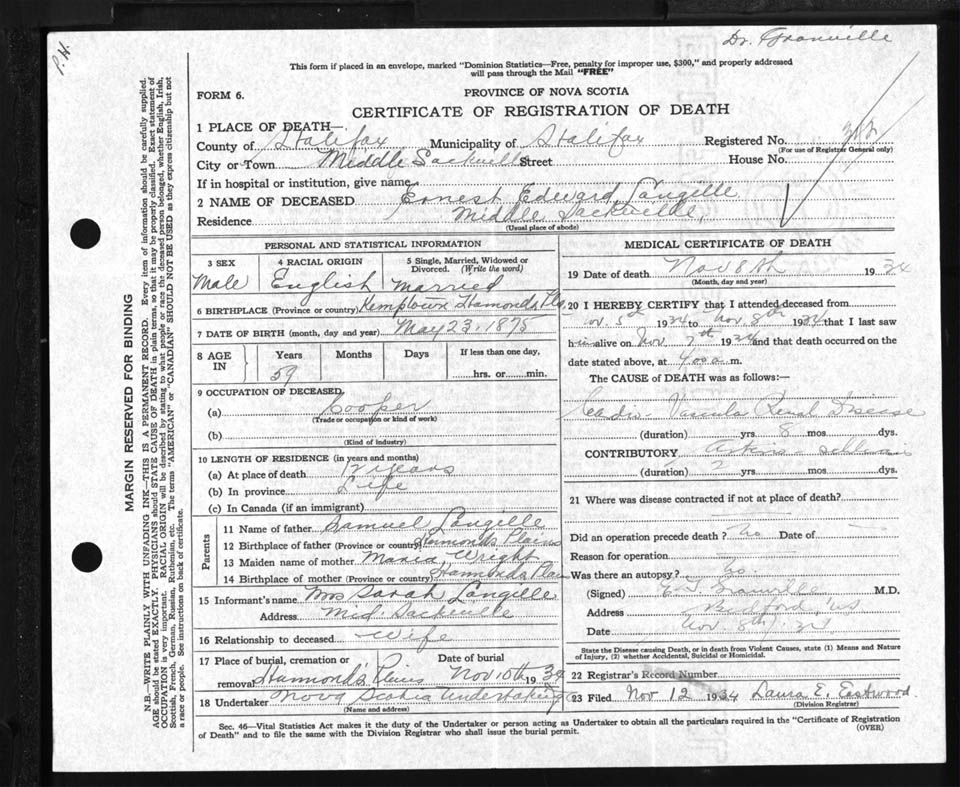 Dr. Granville
P.H.
This form if placed in an envelope, marked "Dominion Statistics—Free, penalty for improper use, $300," and properly addressed
will pass through the Mail "FREE"
FORM 6.
PROVINCE OF NOVA SCOTIA
CERTIFICATE OF REGISTRATION OF DEATH
1 PLACE OF DEATH—
County of Halifax Municipality of Halifax Registered No.
(For use of Registrar General only)
City or Town Middle Sackville Street House No.
If in hospital or institution, give name
2 NAME OF DECEASED Ernest Edward Langille
Residence Middle Sackville,
(Usual place of abode)
PERSONAL AND STATISTICAL INFORMATION
3 SEX Male
4 RACIAL ORIGIN English
5 Single, Married, Widowed or Divorced. (Write the word) Married
6 BIRTHPLACE (Province or country) Kemptown Hamonds Pls
7 DATE OF BIRTH (month, day and year) May 23, 1875
8 AGE IN Years Months Days If less than one day,
59 hrs. or min.
9 OCCUPATION OF DECEASED.
(a) Cooper
(Trade or occupation or kind of work)
(b)
(Kind of industry)
10 LENGTH OF RESIDENCE (in years and months)
(a) At place of death 12 years
(b) In province Life
(c) In Canada (if an immigrant)
Parents
11 Name of father Samuel Langille
12 Birthplace of father (Province or country) Hammonds Plains
13 Maiden name of mother Maria Wright
14 Birthplace of mother (Province or country) Hamonds Plain
15 Informant's name Mrs Sarah Langille
Address Mid. Sackville
16 Relationship to deceased Wife
17 Place of burial, cremation or removal Hammond's Plains Date of burial Nov 10th 1934
18 Undertaker Nova Scotia Undertaking
(Name and address)
MEDICAL CERTIFICATE OF DEATH
19 Date of death Nov 8th 1934
(Month, day and year)
20 I HEREBY CERTIFY that I attended deceased from
Nov. 5th 1934 to Nov 8th 1934 that I last saw
him alive on Nov. 7th 1934 and that death occurred on the
date stated above, at 400 a m.
The CAUSE OF DEATH was as follows:—
Cardio Vascular Renal Disease
(duration) yrs. 8 mos. dys.
CONTRIBUTORY
(duration) 2 yrs. mos. dys.
21 Where was disease contracted if not at place of death?
Did an operation precede death? no Date of
Reason for operation
Was there an autopsy? no.
(Signed) Granville M.D.
Address Bedford, NS
Date Nov. 8th, 34
State the Disease causing Death, or in death from Violent Causes, state (1) Means and
Nature of Injury, (2) whether Accidental, Suicidal or Homicidal.
22 Registrar's Record Number
23 Filed Nov 12 1934 Laura E. Eastwood.
(Division Registrar)
Sec. 46—Vital Statistics Act makes it the duty of the Undertaker or person acting as Undertaker to obtain all the particulars required in the "Certificate of Registration
of Death" and to file the same with the Division Registrar who shall issue the burial permit.
(OVER)
MARGIN RESERVED FOR BINDING
N.B.—WRITE PLAINLY WITH UNFADING INK—THIS IS A PERMANENT RECORD. Every item of information should be carefully supplied.
AGE should be stated EXACTLY. PHYSICIANS should STATE CAUSE OF DEATH in plain terms, so that it may be properly classified. Exact statement of
OCCUPATION is very important. RACIAL ORIGIN will be described by stating to what people or race the deceased person belonged, whether English, Irish,
Scottish, French, German, Russian, Ruthenian, etc. The terms "AMERICAN" or "CANADIAN" SHOULD NOT BE USED as they express citizenship but not
a race or people. See instructions on back of certificate.